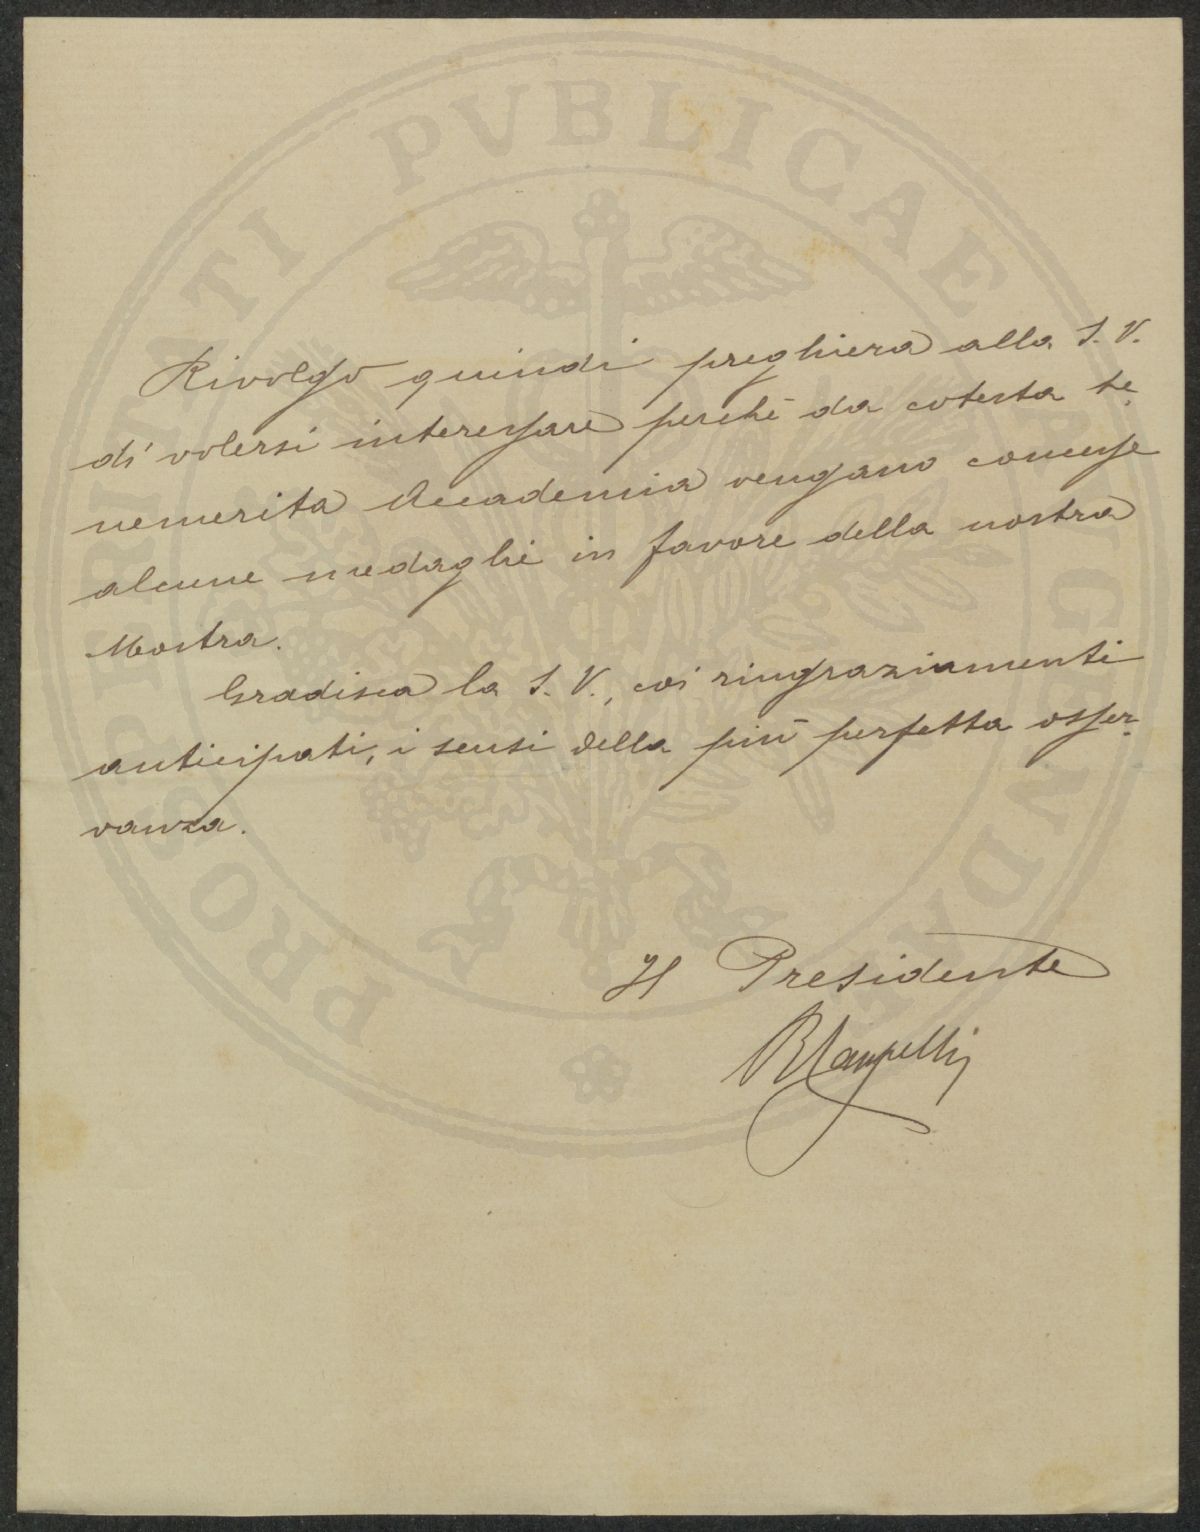 PROSPERITATI PVBLICAE AVGENDAE
Rivolgo quindi preghiera alla S. V.
di volersi interessare perchè da cotesta be-
nemerita Accademia vengano concesse
alcune medaglie in favore della nostra
Mostra.
Gradisca la S. V., coi ringraziamenti
anticipati, i sensi della più perfetta osser-
vanza.
Il Presidente